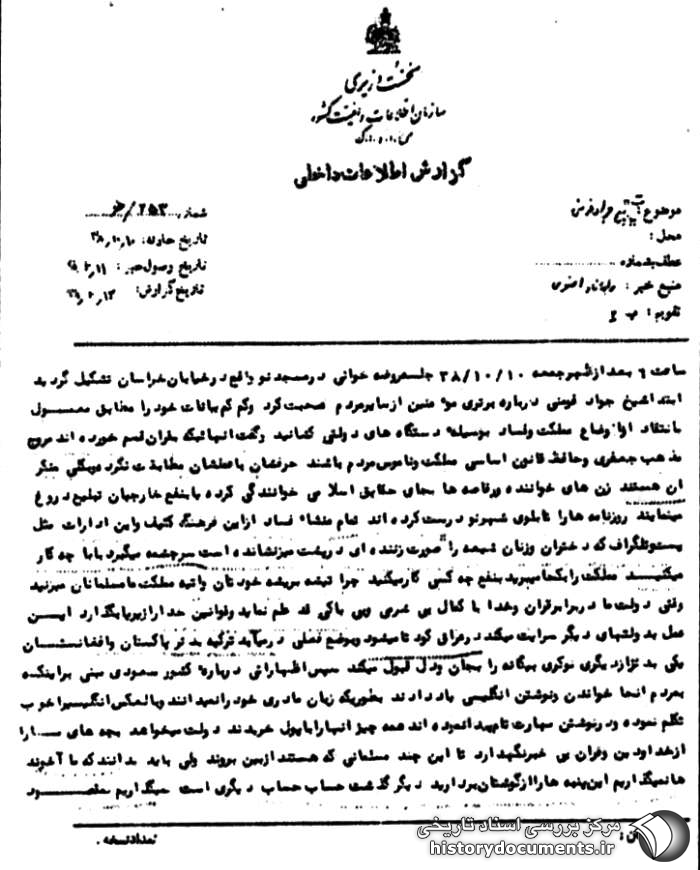 نخست وزیری
سازمان اطلاعات و امنیت کشور
گزارش اطلاعات داخلی
موضوع:
محل:
عطف بشماره
منبع خبر:
تقویم:
شماره
تاریخ حادثه: ۳۸٫۱۰٫۱۰
تاریخ وصول خبر:
تاریخ گزارش:
ساعت ۶ بعد از ظهر جمعه ۳۸/۱۰/۱۰ جلسه روضه خوانی در مسجد نو واقع در خیابان خراسان تشکیل گردید
ابتدا شیخ جواد فومنی درباره برتری مؤمنین از سایر مردم صحبت کرد و کم کم بیانات خود را مطابق معمول
با انتقاد از اوضاع مملکت و فساد بوسیله دستگاه های دولتی کشانید و گفت آنهائیکه بقرآن قسم خورده اند مروج
مذهب جعفری و حافظ قانون اساسی مملکت و ناموس مردم باشند حرفشان با عملشان مطابقت نکرد و بکلی منکر
آن هستند زن های خواننده و رقاصه ها بجای حقایق اسلامی خوانندگی کرده با بنفع خارجیان تبلیغ دروغ
مینمایند روزنامه ها را تابلوی شهر نو درست کرده اند تمام منشاء فساد از این فرهنگ کثیف و این ادارات مثل
پست و تلگراف که دختران و زنان شیعه را بصورت زننده ای در پشت میز نشانده است سرچشمه میگیرد بابا چه کار
میکنید مملکت را بکجا میبرید بنفع چه کسی کار میکنید چرا تیشه بریشه خودتان و اتیه مملکت ما مسلمانان میزنید
وقتی دولت ما در برابر قران و خدا با کمال بی شرمی و بی باکی قد علم نماید و قوانین خدا را زیر پا بگذارد این
عمل بدولتهای دیگر سرایت میکند در عراق کودتا میشود و بوضع فعلی در میآید ترکیه بدتر پاکستان و افغانستان
یکی بدتر از دیگری نوکری بیگانه را بجان و دل قبول میکند سپس اظهاراتی درباره کشور سعودی مبنی بر اینکه
بمردم آنجا خواندن و نوشتن انگلیسی یاد دادند بطوریکه زبان مادری خود را نمیدانند و بالعکس انگلیسی را خوب
تکلم نموده و در نوشتن مهارت تام پیدا نموده اند همه چیز آنها را با پول خریدند دولت میخواهد بچه های ما را
از خدا و دین و قران بی خبر نگهدارد تا این چند مسلمانی که هستند از بین بروند ولی باید بدانند که ما آخوند
ها نمیگذاریم این پنبه ها را از گوشتان بردارید دیگر گذشت حساب حساب دیگری است میگذاریم مقصود
تعداد نسخه:
مرکز بررسی اسناد تاریخی
historydocuments.ir